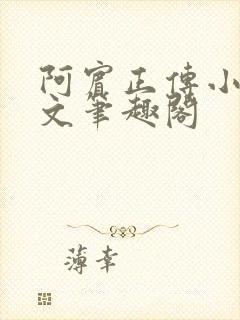 阿賓正傳小
文筆趣閣
薄幸